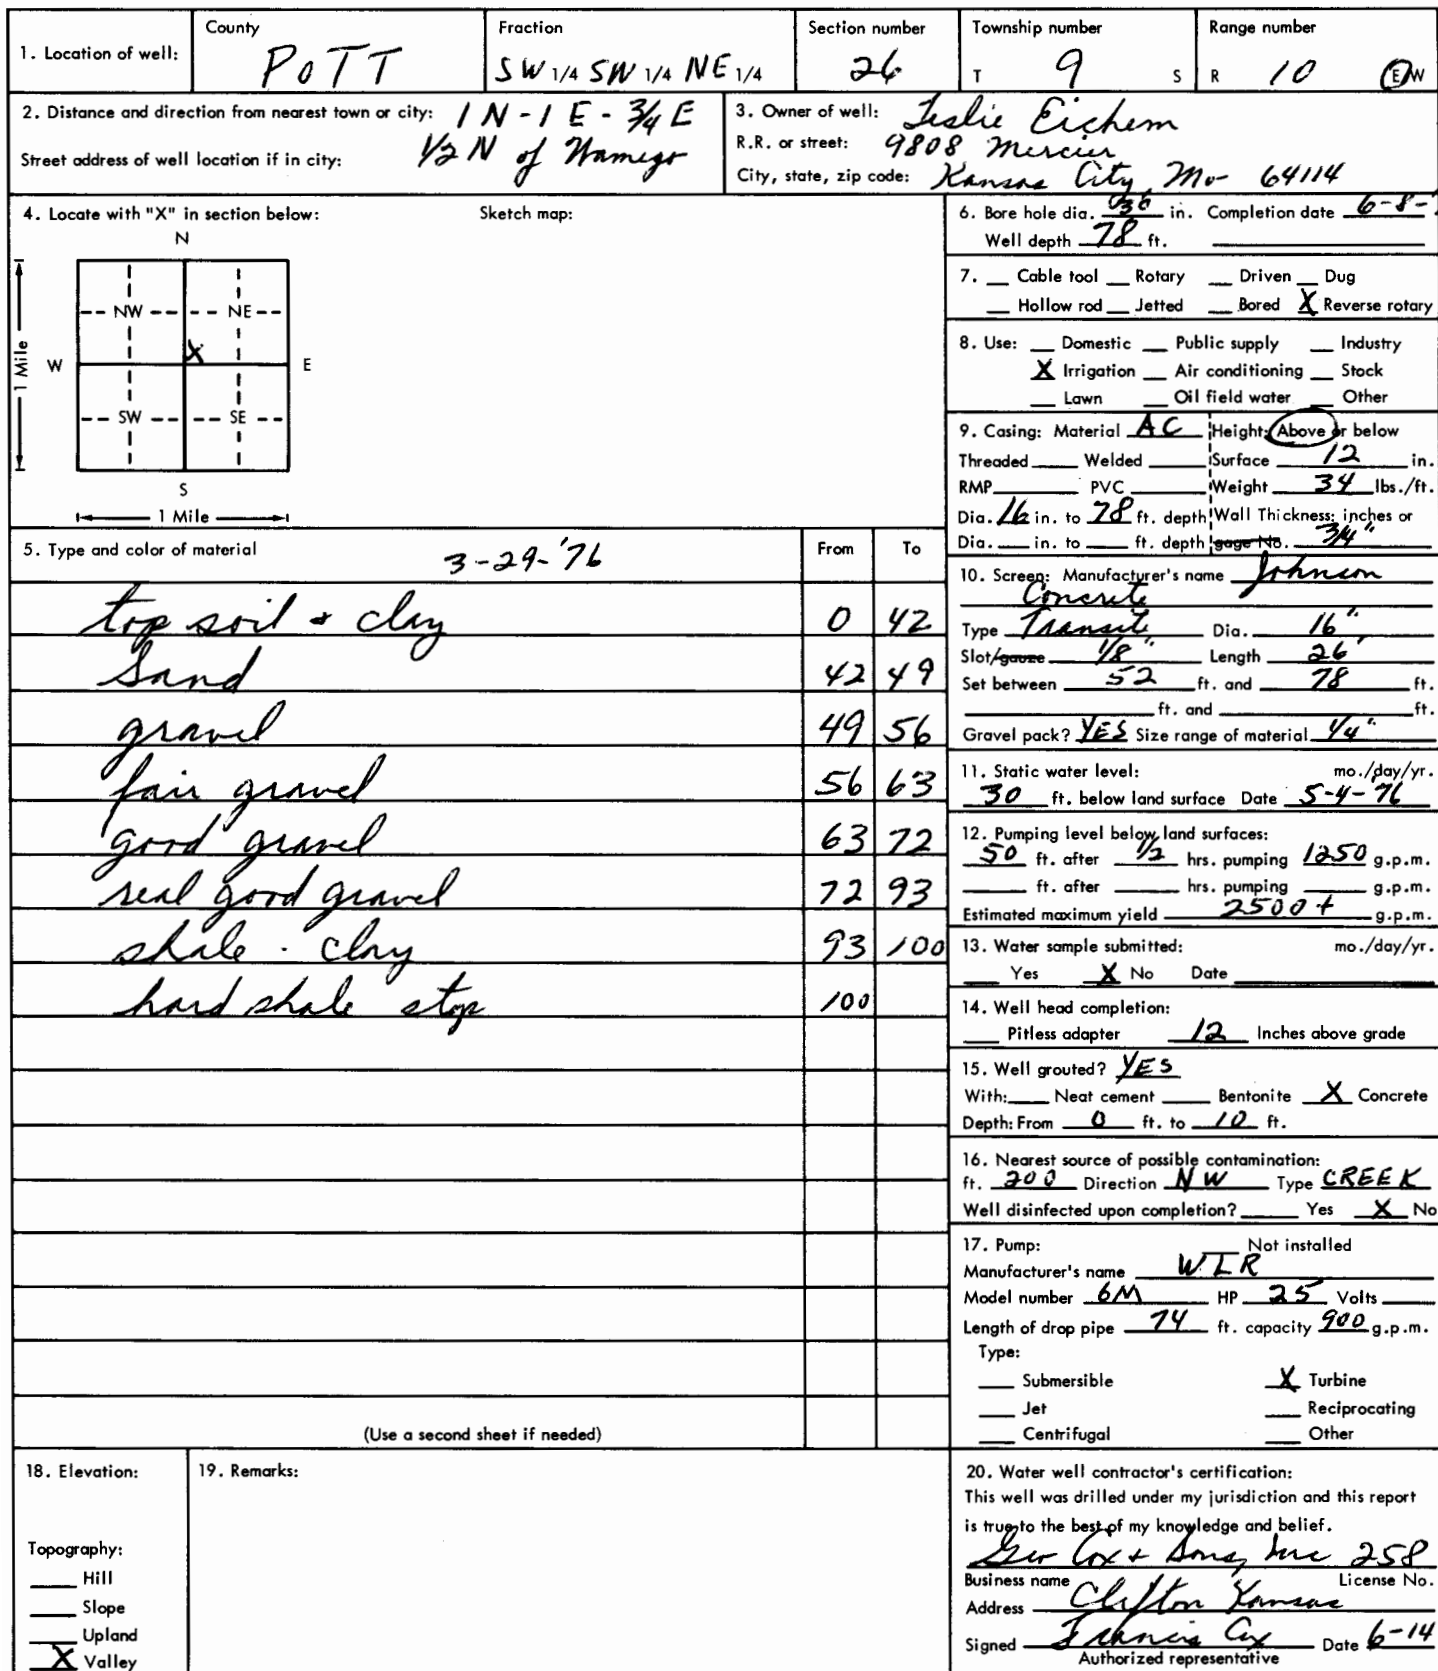 1. Location of well: County POTT Fraction SW 1/4 SW 1/4 NE 1/4 Section number 26 Township number T 9 S Range number R 10 E/W
2. Distance and direction from nearest town or city: 1 N - 1 E - 3/4 E
Street address of well location if in city: 1/2 N of Wamego
3. Owner of well: Leslie Eichem
R.R. or street: 9808 Mercier
City, state, zip code: Kansas City, Mo 64114
4. Locate with "X" in section below: Sketch map:
N
NW NE
X
W E
SW SE
S
1 Mile
1 Mile
5. Type and color of material 3-29-'76 From To
top soil + clay 0 42
Sand 42 49
gravel 49 56
fair gravel 56 63
good gravel 63 72
real good gravel 72 93
shale - clay 93 100
hard shale stop 100
(Use a second sheet if needed)
6. Bore hole dia. in. Completion date 6-8-
Well depth 78 ft.
7. Cable tool Rotary Driven Dug
Hollow rod Jetted Bored X Reverse rotary
8. Use: Domestic Public supply Industry
X Irrigation Air conditioning Stock
Lawn Oil field water Other
9. Casing: Material AC Height: Above or below
Threaded Welded Surface 12 in.
RMP PVC Weight 34 lbs./ft.
Dia. 16 in. to 78 ft. depth Wall Thickness: inches or
Dia. in. to ft. depth gage No. 3/4"
10. Screen: Manufacturer's name Johnson
Concrete
Type Transite Dia. 16"
Slot/gauze 1/8" Length 26'
Set between 52 ft. and 78 ft.
ft. and ft.
Gravel pack? YES Size range of material 1/4"
11. Static water level: mo./day/yr.
30 ft. below land surface Date 5-4-76
12. Pumping level below land surfaces:
50 ft. after 1/2 hrs. pumping 1250 g.p.m.
ft. after hrs. pumping g.p.m.
Estimated maximum yield 2500 + g.p.m.
13. Water sample submitted: mo./day/yr.
Yes X No Date
14. Well head completion:
Pitless adapter 12 Inches above grade
15. Well grouted? YES
With: Neat cement Bentonite X Concrete
Depth: From 0 ft. to 10 ft.
16. Nearest source of possible contamination:
ft. 200 Direction NW Type CREEK
Well disinfected upon completion? Yes X No
17. Pump: Not installed
Manufacturer's name WLR
Model number 6M HP 25 Volts
Length of drop pipe 74 ft. capacity 900 g.p.m.
Type:
Submersible X Turbine
Jet Reciprocating
Centrifugal Other
18. Elevation:
Topography:
Hill
Slope
Upland
X Valley
19. Remarks:
20. Water well contractor's certification:
This well was drilled under my jurisdiction and this report
is true to the best of my knowledge and belief.
Geo Cox + Sons, Inc 258
Business name License No.
Address Clifton Kansas
Signed Francis Cox Date 6-14
Authorized representative